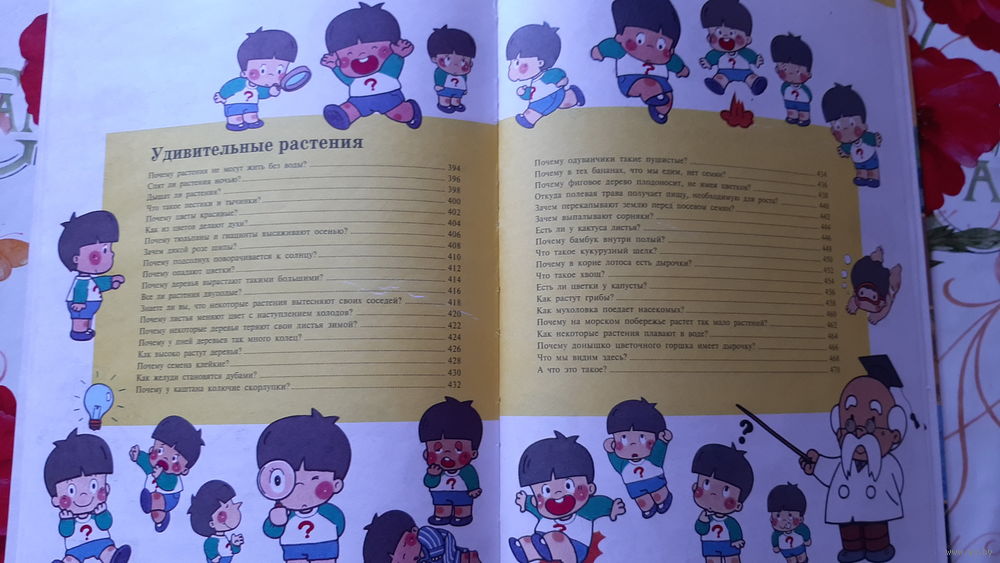 Удивительные растения
Почему растения не могут жить без воды? 394
Спят ли растения ночью? 396
Дышат ли растения? 398
Что такое пестики и тычинки? 400
Почему цветы красивые? 402
Как из цветов делают духи? 404
Почему тюльпаны и гиацинты высаживают осенью? 406
Зачем дикой розе шипы? 408
Почему подсолнух поворачивается к солнцу? 410
Почему опадают цветки? 412
Почему деревья вырастают такими большими? 414
Все ли растения двуполые? 416
Знаете ли вы, что некоторые растения вытесняют своих соседей? 418
Почему листья меняют цвет с наступлением холодов? 420
Почему некоторые деревья теряют свои листья зимой? 422
Почему у пней деревьев так много колец? 424
Как высоко растут деревья? 426
Почему семена клейкие? 428
Как желуди становятся дубами? 430
Почему у каштана колючие скорлупки? 432
Почему одуванчики такие пушистые? 434
Почему в тех бананах, что мы едим, нет семян? 436
Почему фиговое дерево плодоносит, не имея цветков? 438
Откуда полевая трава получает пищу, необходимую для роста? 440
Зачем перекапывают землю перед посевом семян? 442
Зачем выпалывают сорняки? 444
Есть ли у кактуса листья? 446
Почему бамбук внутри полый? 448
Что такое кукурузный шелк? 450
Почему в корне лотоса есть дырочки? 452
Что такое хвощ? 454
Есть ли цветки у капусты? 456
Как растут грибы? 458
Как мухоловка поедает насекомых? 460
Почему на морском побережье растет так мало растений? 462
Как некоторые растения плавают в воде? 464
Почему донышко цветочного горшка имеет дырочку? 466
Что мы видим здесь? 468
А что это такое? 470